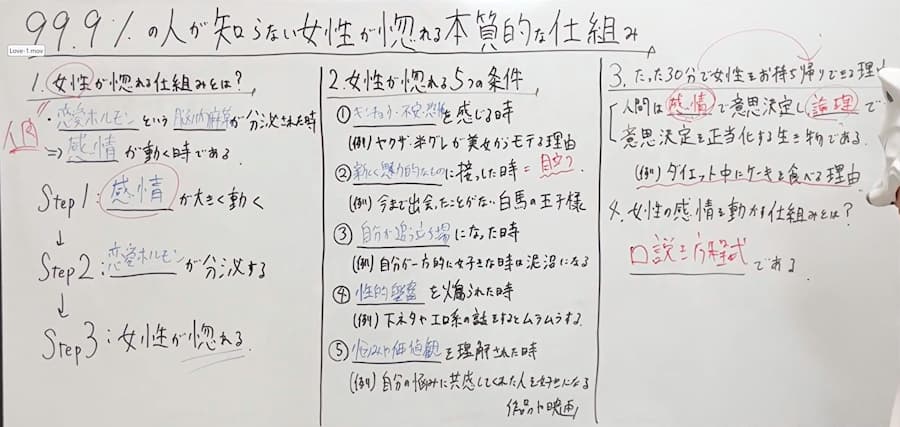 99.9%の人が知らない女性が惚れる本質的な仕組み
Love-1.mov
1.女性が惚れる仕組みとは?
人間
・恋愛ホルモンという脳内麻薬が分泌された時
⇒感情が動く時である.
Step1:感情が大きく動く
↓
Step2:恋愛ホルモンが分泌する
↓
Step3:女性が惚れる.
2.女性が惚れる5つの条件
①キンチョウ・不安・恐怖を感じる時
(例)ヤクザ・半グレが美女がモテる理由
②新しく魅力的なものに接した時=
(例)今まで出会ったことがない白馬の王子様
③自分が追う立場になった時
(例)自分が一方的に好きな時は泥沼になる
④性的興奮を煽られた時
(例)下ネタやエロ系の話をするとムラムラする.
⑤悩みや価値観を理解された時
(例)自分の悩みに共感してくれた人を好きになる
作品や映画
3.たった30分で女性をお持ち帰りできる理由
人間は感情で意思決定し論理で
意思決定を正当化する生き物である.
(例)ダイエット中にケーキを食べる理由
4.女性の感情を動かす仕組みとは?
口説き方程式である